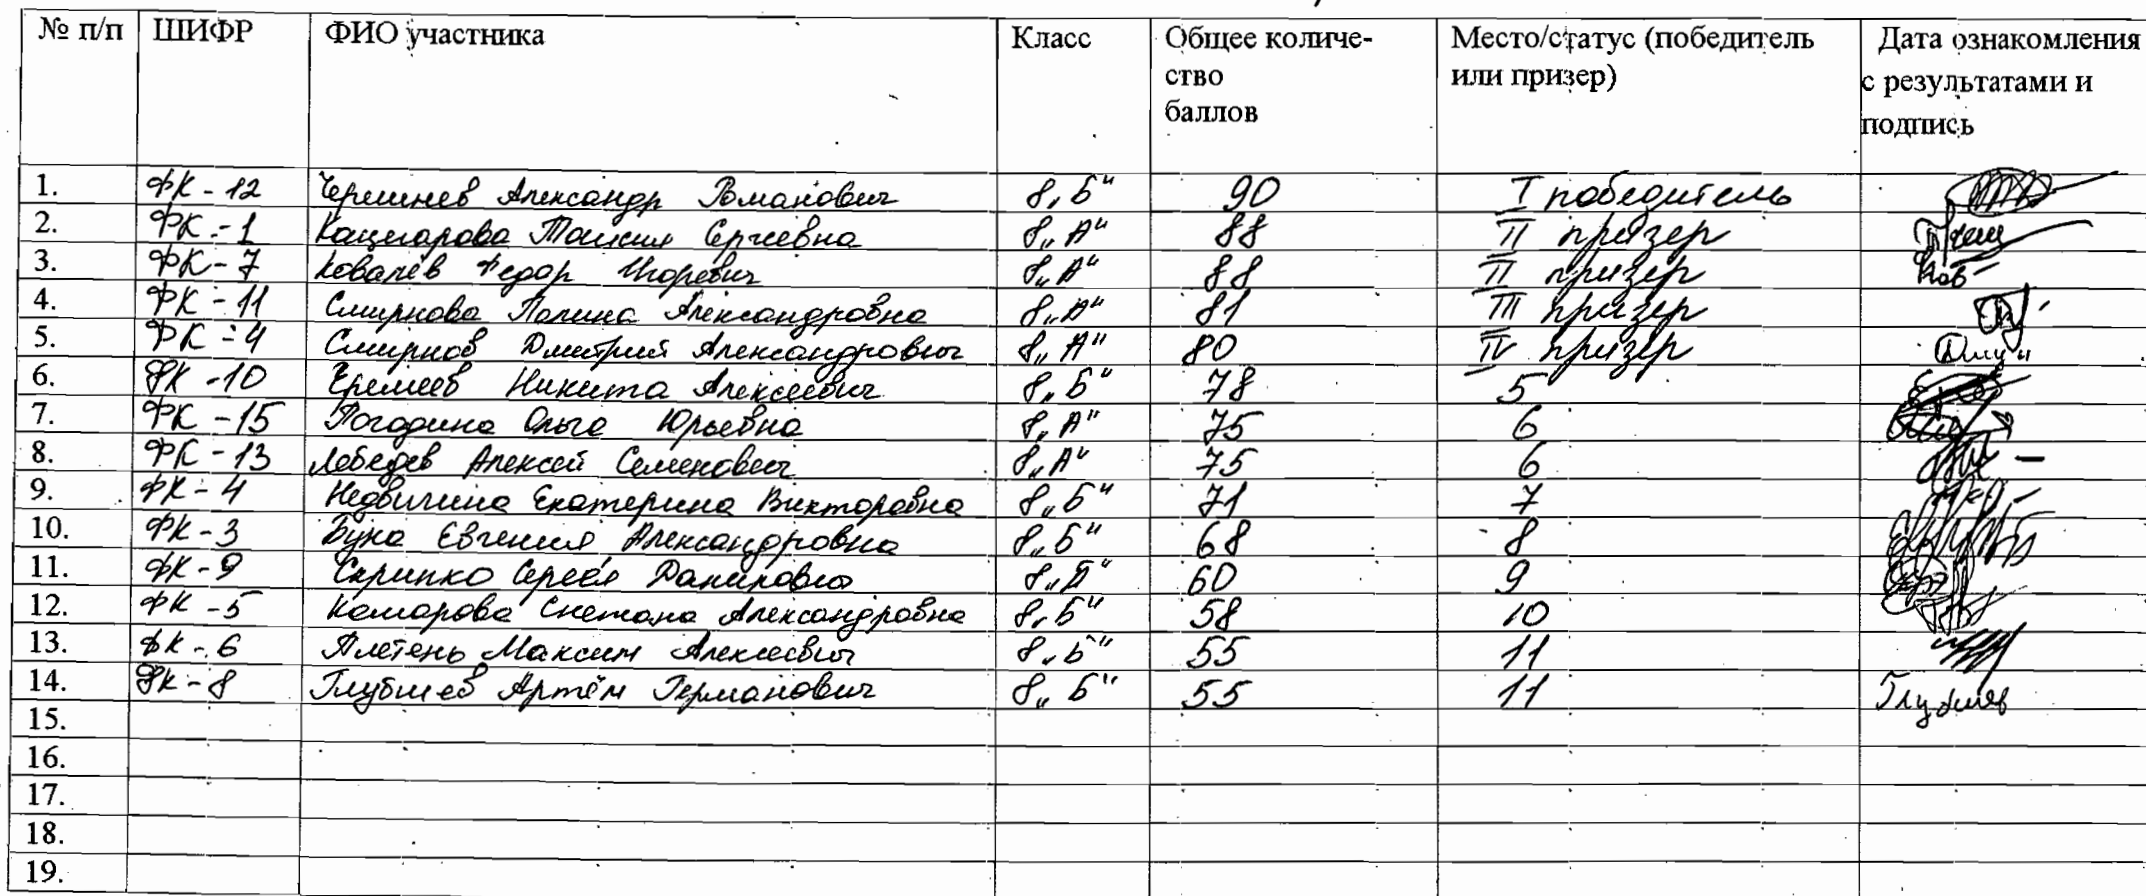 № п/п ШИФР ФИО участника Класс Общее количе- Место/статус (победитель Дата ознакомления
ство или призер) с результатами и
баллов подпись
1. ФК - 12 Черешнев Александр Романович 8„Б" 90 I победитель
2. ФК - 1 Кацегарова Таисия Сергеевна 8„А" 88 II призер
3. ФК - 7 Ковалёв Федор Игоревич 8„А" 88 II призер Ков
4. ФК - 11 Смирнова Полина Александровна 8„А" 81 III призер
5. ФК - 4 Смирнов Дмитрий Александрович 8„А" 80 IV призер
6. ФК - 10 Еремеев Никита Алексеевич 8„Б" 78 5
7. ФК - 15 Погодина Ольга Юрьевна 8„А" 75 6
8. ФК - 13 Лебедев Алексей Семенович 8„А" 75 6
9. ФК - 4 Екатерина Викторовна 8„Б" 71 7
10. ФК - 3 Бука Евгения Александровна 8„Б" 68 8
11. ФК - 9 Скрипко Данилович 60 9
12. ФК - 5 Комарова Александровна 8„Б" 58 10
13. ФК - 6 Плетень Максим Алексеевич 8„Б" 55 11
14. ФК - 8 Глубшев Артём Германович 8„Б" 55 11
15.
16.
17.
18.
19.